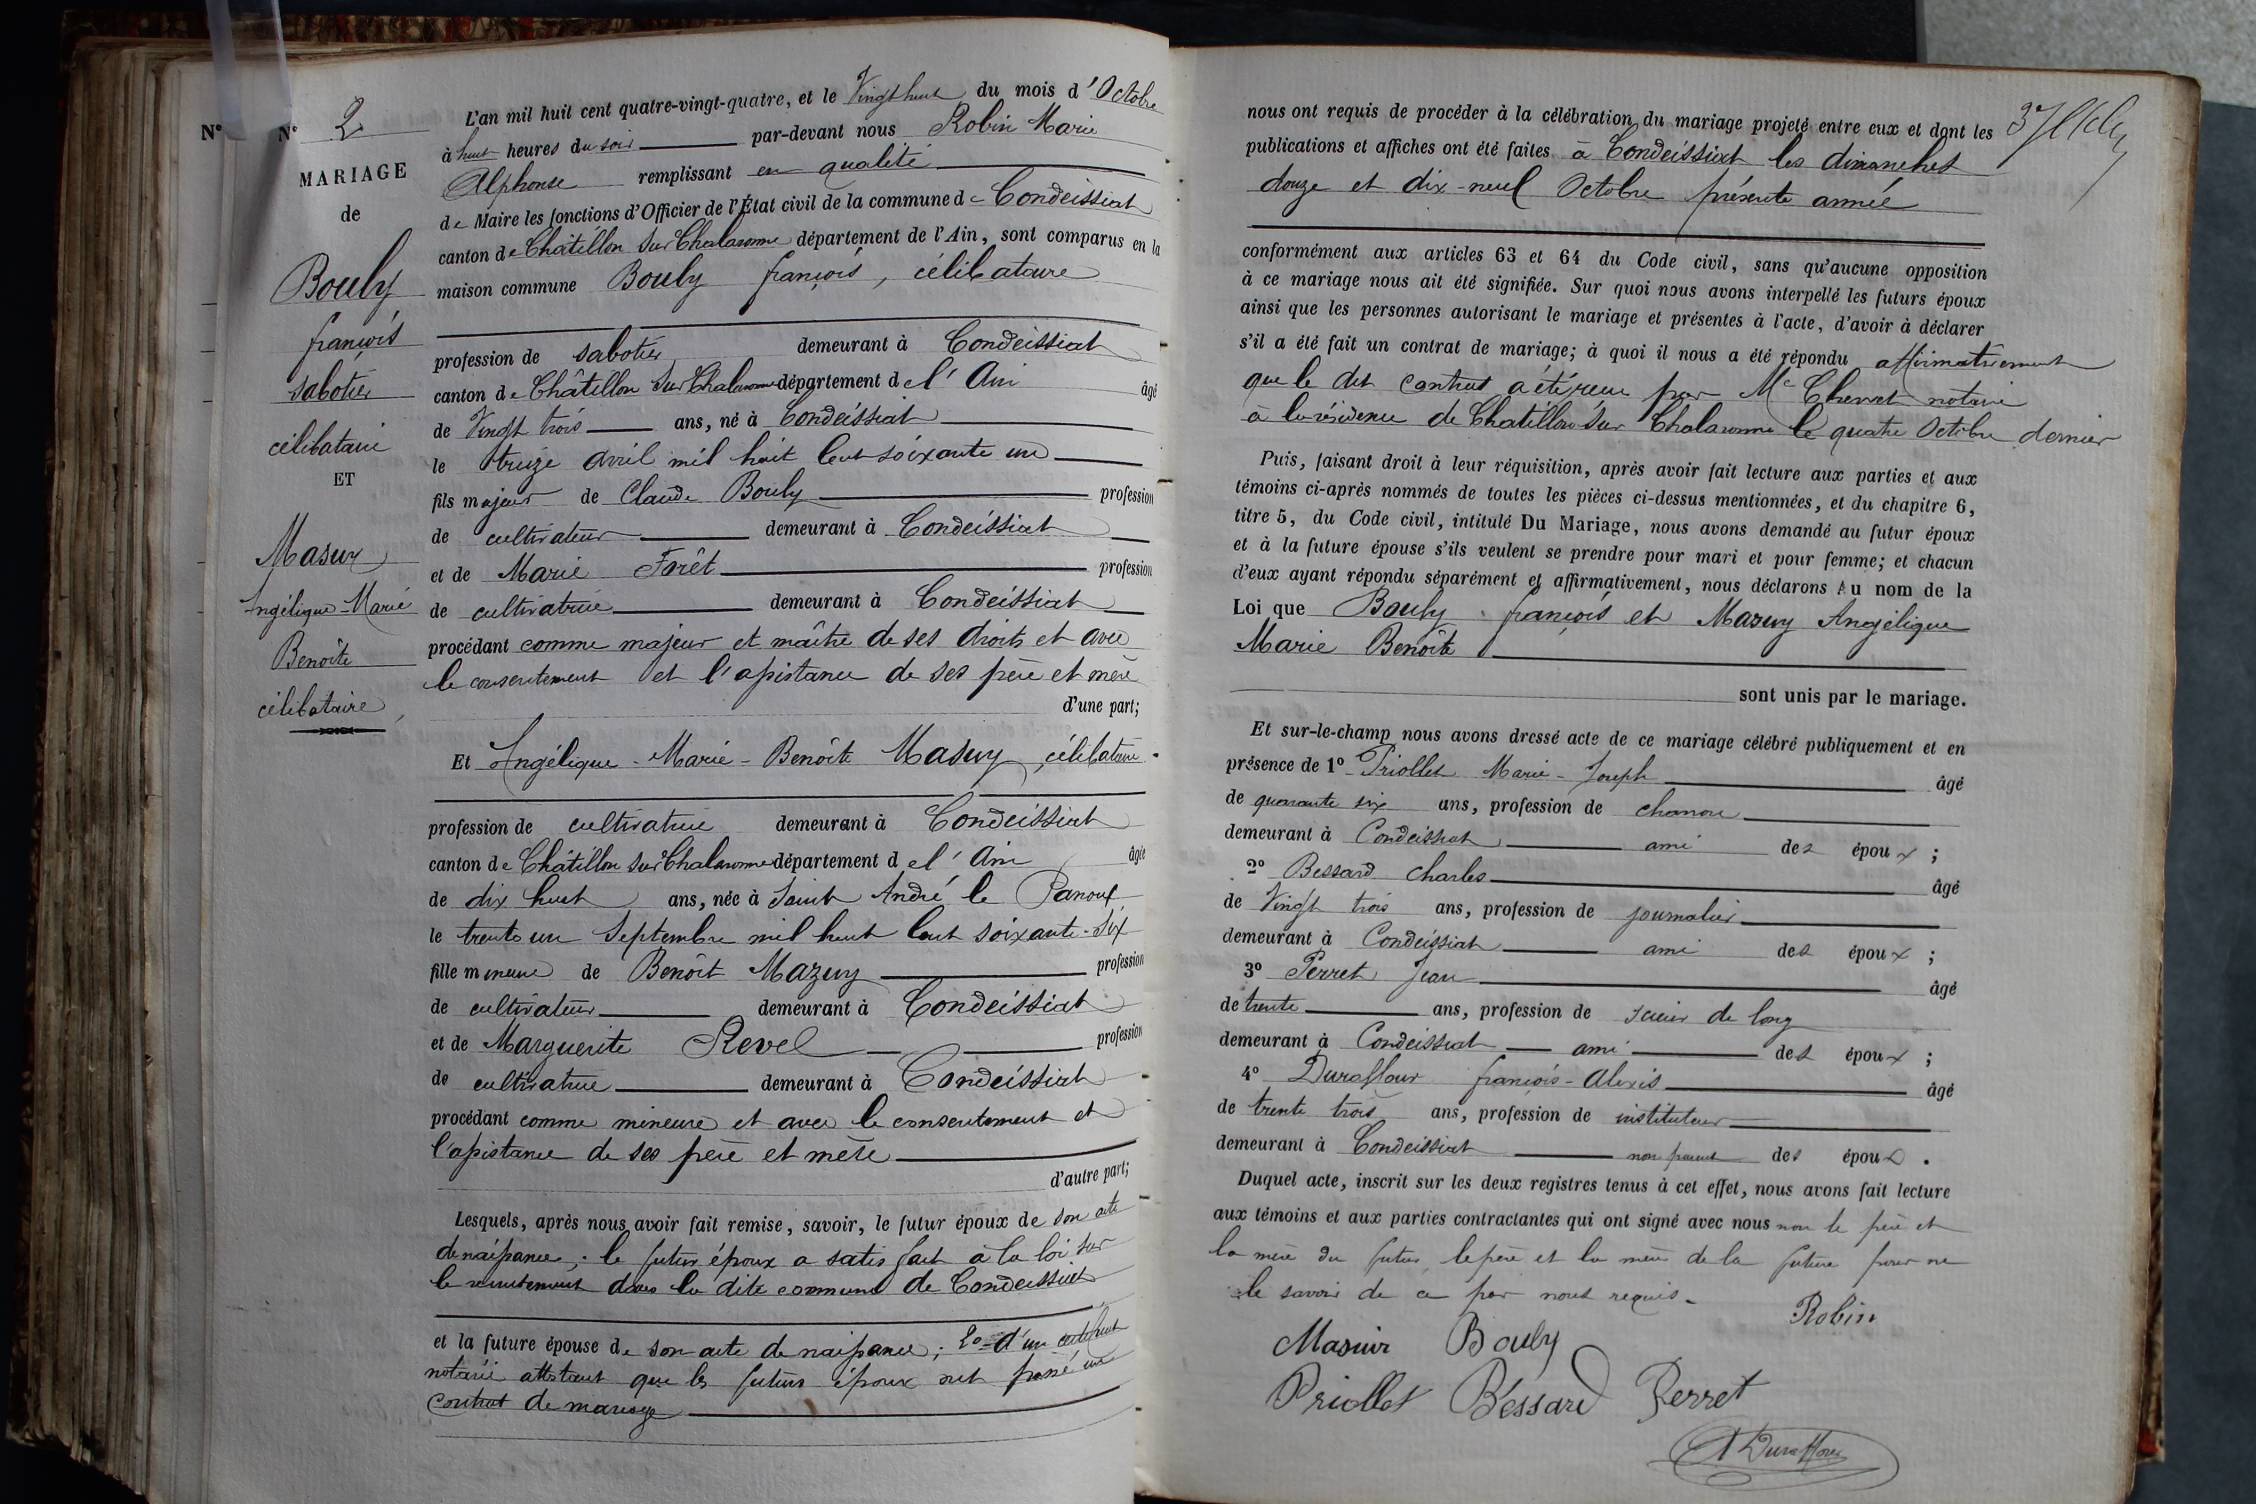 N° N° 2
MARIAGE
de
Bouly
françois
sabotier
célibataire
ET
Masuy
Angélique-Marie
Benoîte
célibataire
L'an mil huit cent quatre-vingt-quatre, et le Vingt huit du mois d'Octobre
à huit heures du soir par-devant nous Robin Marie
Alphonse remplissant en qualité
de Maire les fonctions d'Officier de l'État civil de la commune de Condeissiat
canton de Châtillon sur Chalaronne département de l'Ain, sont comparus en la
maison commune Bouly françois, célibataire
profession de sabotier demeurant à Condeissiat
canton de Châtillon sur Chalaronne département de l'Ain âgé
de Vingt trois ans, né à Condeissiat
le treize avril mil huit Cent soixante un
fils majeur de Claude Bouly profession
de cultivateur demeurant à Condeissiat
et de Marie Forêt profession
de cultivatrice demeurant à Condeissiat
procédant comme majeur et maître de ses droits et avec
le consentement et l'assistance de ses père et mère
d'une part;
Et Angélique-Marie-Benoîte Masuy, célibataire
profession de cultivatrice demeurant à Condeissiat
canton de Châtillon sur Chalaronne département de l'Ain âgée
de dix huit ans, née à Saint André le Panoux
le trente un Septembre mil huit Cent soixante-six
fille mineure de Benoît Mazuy profession
de cultivateur demeurant à Condeissiat
et de Marguerite Revel profession
de cultivatrice demeurant à Condeissiat
procédant comme mineure et avec le consentement et
l'assistance de ses père et mère
d'autre part;
Lesquels, après nous avoir fait remise, savoir, le futur époux de son acte
de naissance; le futur époux a satisfait à la loi sur
le recrutement dans la dite commune de Condeissiat
et la future épouse de son acte de naissance; 2° d'un certificat
notarié attestant que les futurs époux ont passé un
contrat de mariage
nous ont requis de procéder à la célébration du mariage projeté entre eux et dont les
publications et affiches ont été faites à Condeissiat les dimanches
douze et dix-neuf Octobre présente année
conformément aux articles 63 et 64 du Code civil, sans qu'aucune opposition
à ce mariage nous ait été signifiée. Sur quoi nous avons interpellé les futurs époux
ainsi que les personnes autorisant le mariage et présentes à l'acte, d'avoir à déclarer
s'il a été fait un contrat de mariage; à quoi il nous a été répondu affirmativement
que le dit contrat a été reçu par Me Chevret notaire
à la résidence de Chatillon sur Chalaronne le quatre Octobre dernier
Puis, faisant droit à leur réquisition, après avoir fait lecture aux parties et aux
témoins ci-après nommés de toutes les pièces ci-dessus mentionnées, et du chapitre 6,
titre 5, du Code civil, intitulé Du Mariage, nous avons demandé au futur époux
et à la future épouse s'ils veulent se prendre pour mari et pour femme; et chacun
d'eux ayant répondu séparément et affirmativement, nous déclarons Au nom de la
Loi que Bouly françois et Mazuy Angélique
Marie Benoîte
sont unis par le mariage.
Et sur-le-champ nous avons dressé acte de ce mariage célébré publiquement et en
présence de 1° Priollet Marie-Joseph âgé
de quarante six ans, profession de charron
demeurant à Condeissiat ami des époux;
2° Bessard Charles âgé
de Vingt trois ans, profession de journalier
demeurant à Condeissiat ami des époux;
3° Perret Jean âgé
de trente ans, profession de scieur de long
demeurant à Condeissiat ami des époux;
4° Duraffour françois-Alexis âgé
de trente trois ans, profession de instituteur
demeurant à Condeissiat non parent des époux.
Duquel acte, inscrit sur les deux registres tenus à cet effet, nous avons fait lecture
aux témoins et aux parties contractantes qui ont signé avec nous non le père et
la mère du futur, le père et la mère de la future pour ne
le savoir de ce par nous requis.
Robin
Masuir Bouly
Priollet Béssard Perret
A Duraffour